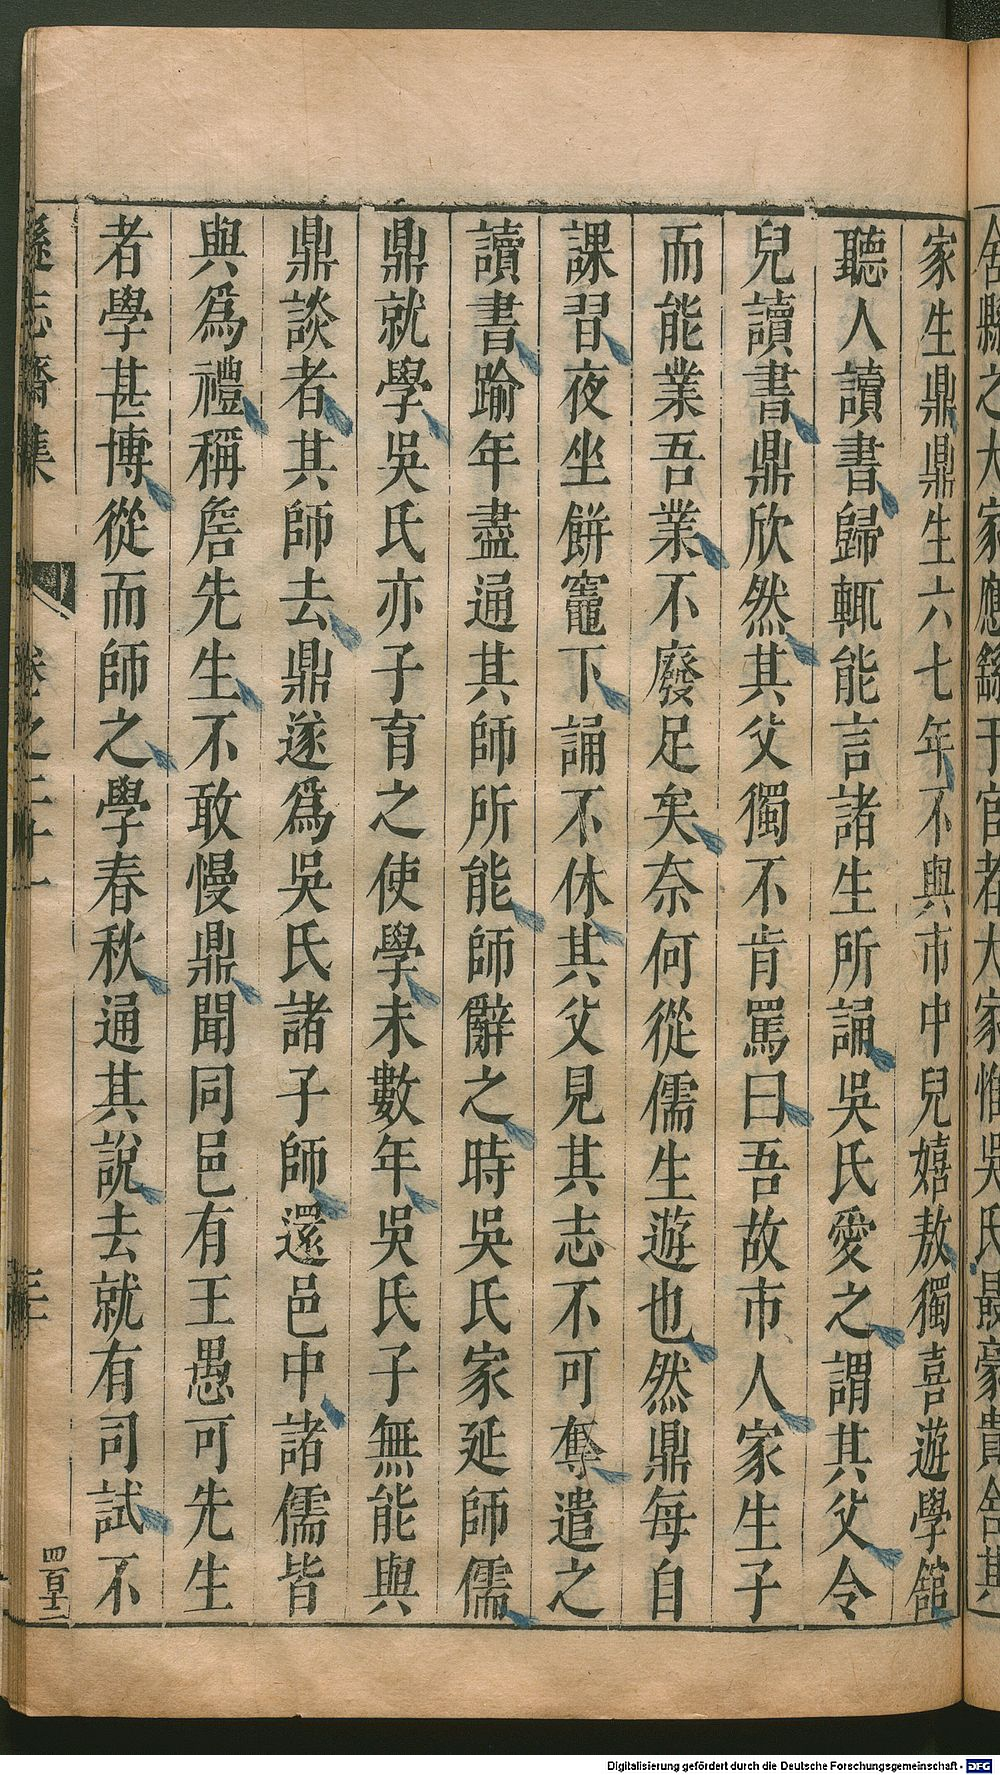 舍縣之大家應繇于官者大家惟吳氏最豪貴舍其
家生鼎鼎生六七年不與市中兒嬉敖獨喜遊學館
聽人讀書歸輒能言諸生所誦吳氏愛之謂其父令
兒讀書鼎欣然其父獨不肯罵曰吾故市人家生子
而能業吾業不廢足矣奈何從儒生遊也然鼎每自
課習夜坐餅竈下誦不休其父見其志不可奪遣之
讀書踰年盡通其師所能師辭之時吳氏家延師儒
鼎就學吳氏亦子育之使學未數年吳氏子無能與
鼎談者其師去鼎遂為吳氏諸子師還邑中諸儒皆
與為禮稱詹先生不敢慢鼎聞同邑有王愚可先生
者學甚博從而師之學春秋通其說去就有司試不
遜志齋集 卷之二十一 三 四百十二
Digitalisierung gefördert durch die Deutsche Forschungsgemeinschaft - DFG